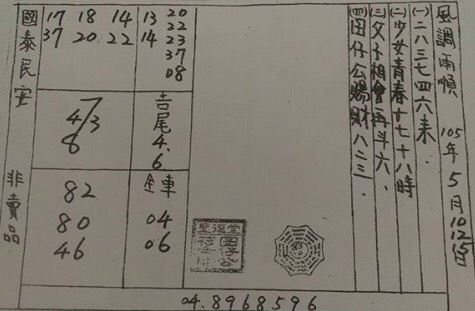 風調雨順 105年5月10 12 15
㈠二八三七四六來.
㈡少女青春十七十八時
㈢父子相會再斗六.
㈣田仔公賜財八二三.
13 20
14 22
23
37
08
吉尾
4.
6
金車
04
06
17 18 14
37 20 22
4/3
6
82
80
46
國泰民安 非賣品
04.8968596